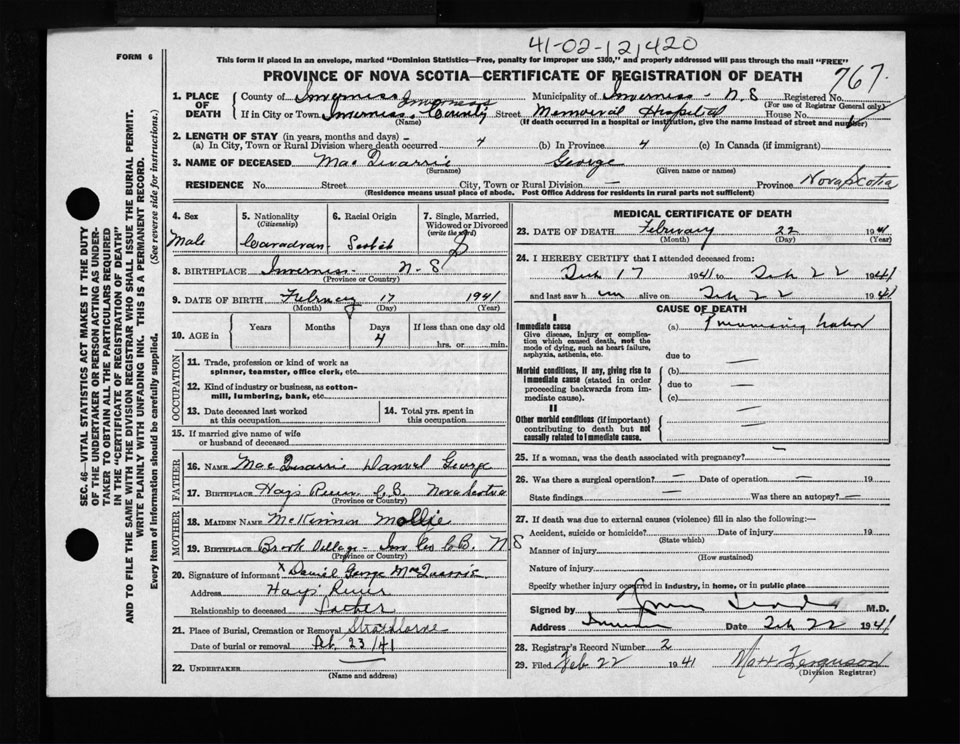 41-02-121420
FORM 6
This form if placed in an envelope, marked "Dominion Statistics—Free, penalty for improper use $300," and properly addressed will pass through the mail "FREE"
PROVINCE OF NOVA SCOTIA—CERTIFICATE OF REGISTRATION OF DEATH
767
1. PLACE OF DEATH
County of Inverness Municipality of Inverness - N.S Registered No.
(For use of Registrar General only)
If in City or Town Inverness Inverness County Street Memorial Hospital House No.
(Name) (If death occurred in a hospital or institution, give the name instead of street and number)
2. LENGTH OF STAY (in years, months and days) –
(a) In City, Town or Rural Division where death occurred 4 (b) In Province 4 (c) In Canada (if immigrant)
3. NAME OF DECEASED Mac Quarrie George
(Surname) (Given name or names)
RESIDENCE No. Street City, Town or Rural Division – Province Nova Scotia
(Residence means usual place of abode. Post Office Address for residents in rural parts not sufficient)
4. Sex
Male
5. Nationality
(Citizenship)
Canadian
6. Racial Origin
Scotish
7. Single, Married, Widowed or Divorced
(write the word)
S
8. BIRTHPLACE Inverness - N-S
(Province or Country)
9. DATE OF BIRTH February 17 1941
(Month) (Day) (Year)
10. AGE in
Years Months Days If less than one day old
4 hrs. or min.
OCCUPATION
11. Trade, profession or kind of work as
spinner, teamster, office clerk, etc.
12. Kind of industry or business, as cotton-
mill, lumbering, bank, etc.
13. Date deceased last worked
at this occupation
14. Total yrs. spent in
this occupation
15. If married give name of wife
or husband of deceased
FATHER
16. NAME Mac Quarrie Daniel George
17. BIRTHPLACE Hays River C.B. Nova Scotia
(Province or Country)
MOTHER
18. MAIDEN NAME McKinnon Mollie
19. BIRTHPLACE Brook Village - Inv Co C.B. N S
(Province or Country)
20. Signature of informant X Daniel George MacQuarrie
Address Hays River
Relationship to deceased Father
21. Place of Burial, Cremation or Removal Strathlorne
Date of burial or removal Feb. 23/41
22. UNDERTAKER
(Name and address)
MEDICAL CERTIFICATE OF DEATH
23. DATE OF DEATH February 22 1941
(Month) (Day) (Year)
24. I HEREBY CERTIFY that I attended deceased from:
Feb 17 1941 to Feb 22 1941
and last saw him alive on Feb 22 1941
CAUSE OF DEATH
I
Immediate cause (a)
Give disease, injury or complica-
tion which caused death, not the
mode of dying, such as heart failure,
asphyxia, asthenia, etc.
due to —
Morbid conditions, if any, giving rise to
immediate cause (stated in order
proceeding backwards from im-
mediate cause).
(b)
due to —
(c)
II
Other morbid conditions (if important)
contributing to death but not
causally related to immediate cause.
—
25. If a woman, was the death associated with pregnancy? –
26. Was there a surgical operation? – Date of operation – 19
State findings – Was there an autopsy? –
27. If death was due to external causes (violence) fill in also the following:—
Accident, suicide or homicide? Date of injury 19
(State which)
Manner of injury
(How sustained)
Nature of injury
Specify whether injury occurred in industry, in home, or in public place
Signed by M.D.
Address Inverness Date Feb 22 1941
28. Registrar's Record Number 2
29. Filed Feb 22 1941 Matt Ferguson
(Division Registrar)
SEC. 46—VITAL STATISTICS ACT MAKES IT THE DUTY
OF THE UNDERTAKER OR PERSON ACTING AS UNDER-
TAKER TO OBTAIN ALL THE PARTICULARS REQUIRED
IN THE "CERTIFICATE OF REGISTRATION OF DEATH"
AND TO FILE THE SAME WITH THE DIVISION REGISTRAR WHO SHALL ISSUE THE BURIAL PERMIT.
WRITE PLAINLY WITH UNFADING INK. THIS IS A PERMANENT RECORD.
Every item of information should be carefully supplied. (See reverse side for instructions.)